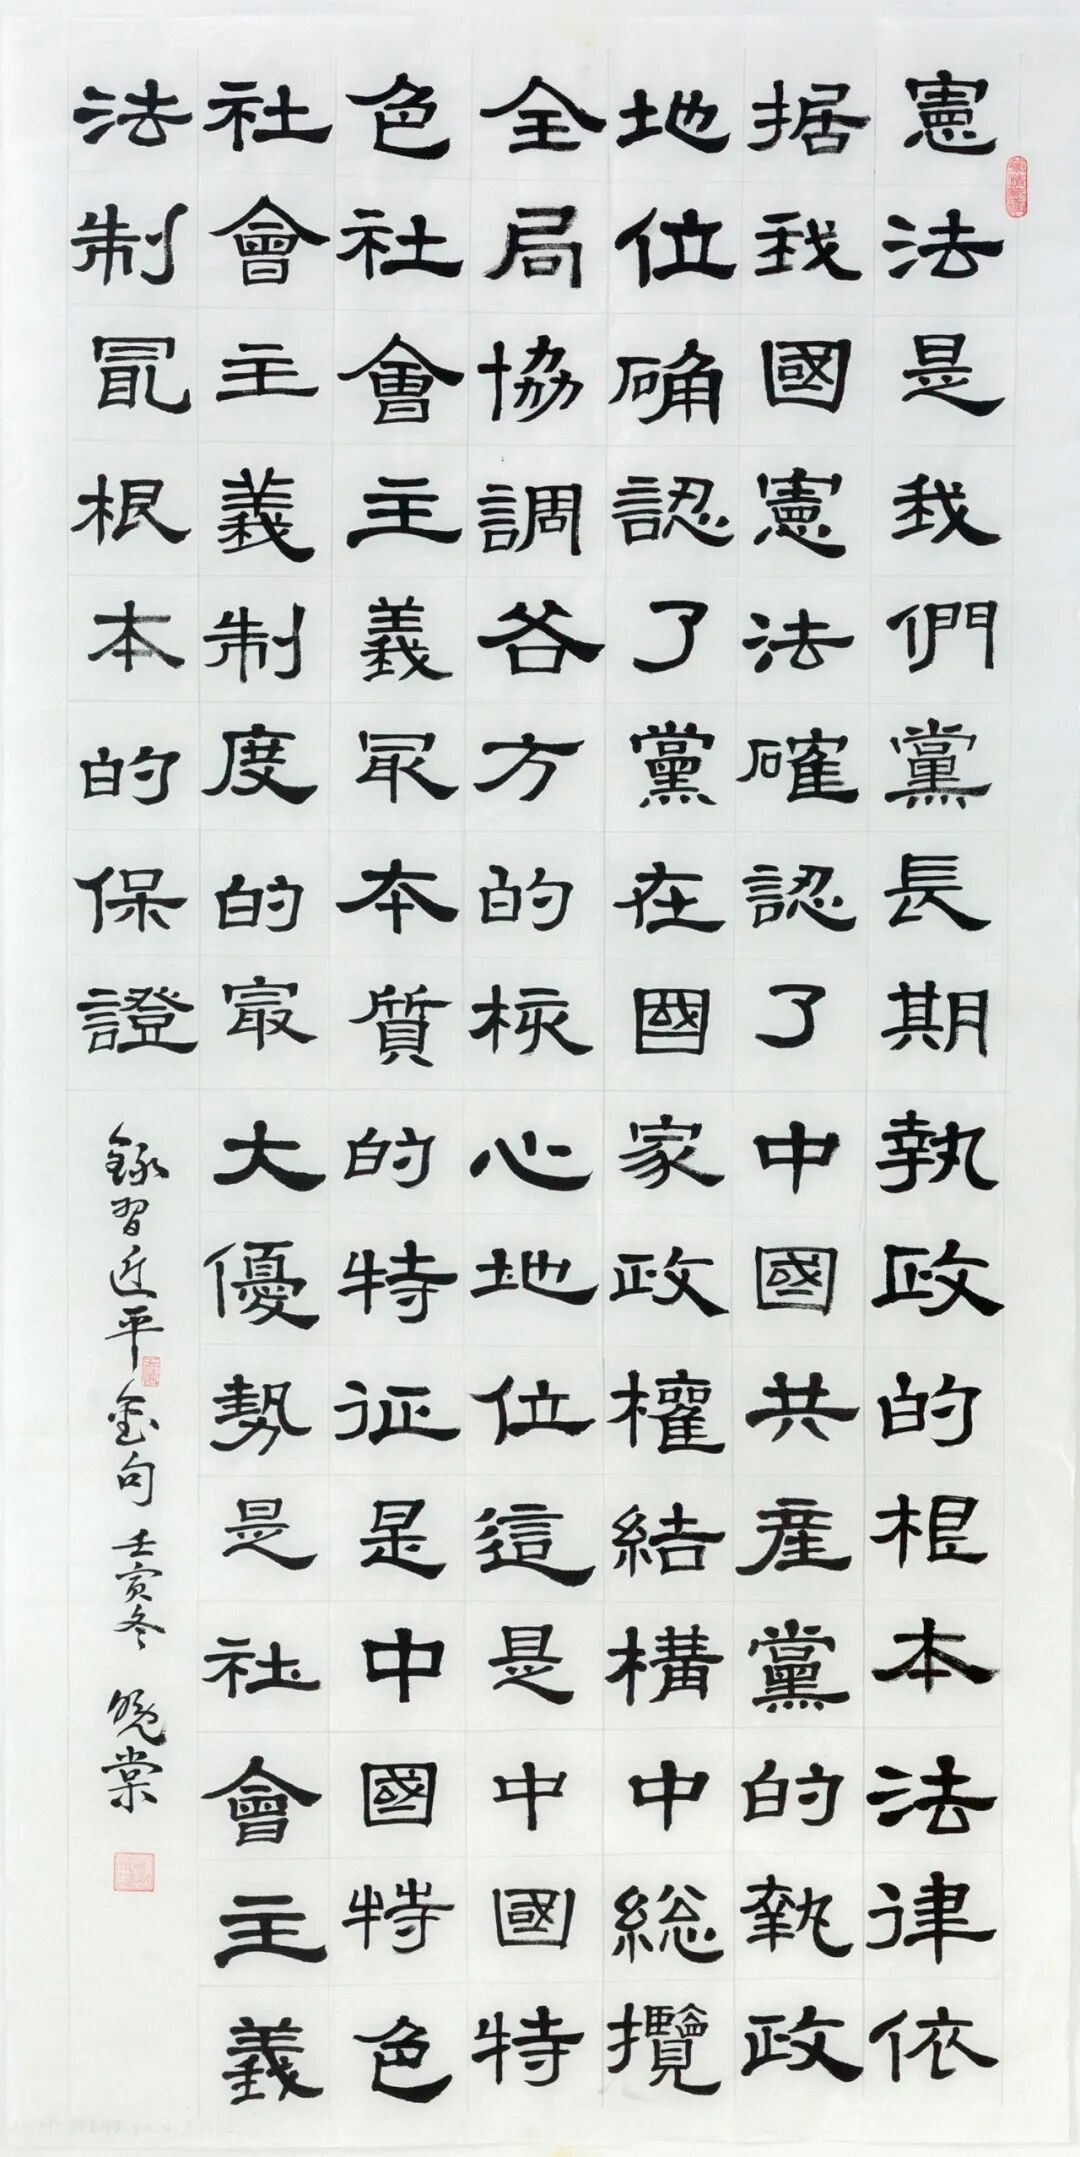 憲法是我們黨長期執政的根本法律依
据我國憲法確認了中國共產黨的執政
地位确認了黨在國家政權結構中総攬
全局協調各方的核心地位這是中國特
色社會主義最本質的特征是中國特色
社會主義制度的最大優勢是社會主義
法制最根本的保證
錄習近平金句 壬寅冬 曉棠